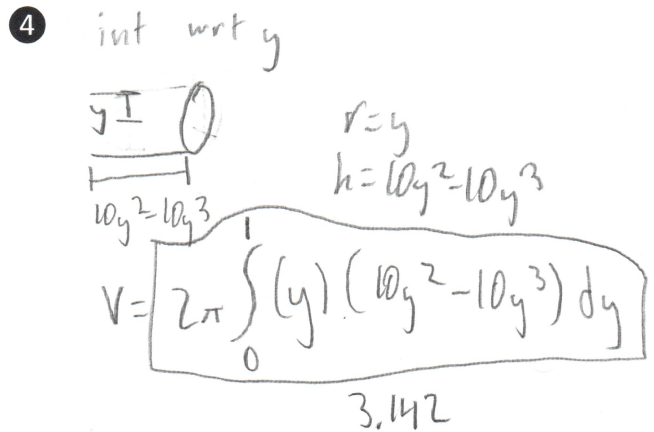 4 int wrt y
y
r=y
h=10y²-10y³
10y²-10y³
V= 2π ∫₀¹ (y)(10y²-10y³) dy
3.142